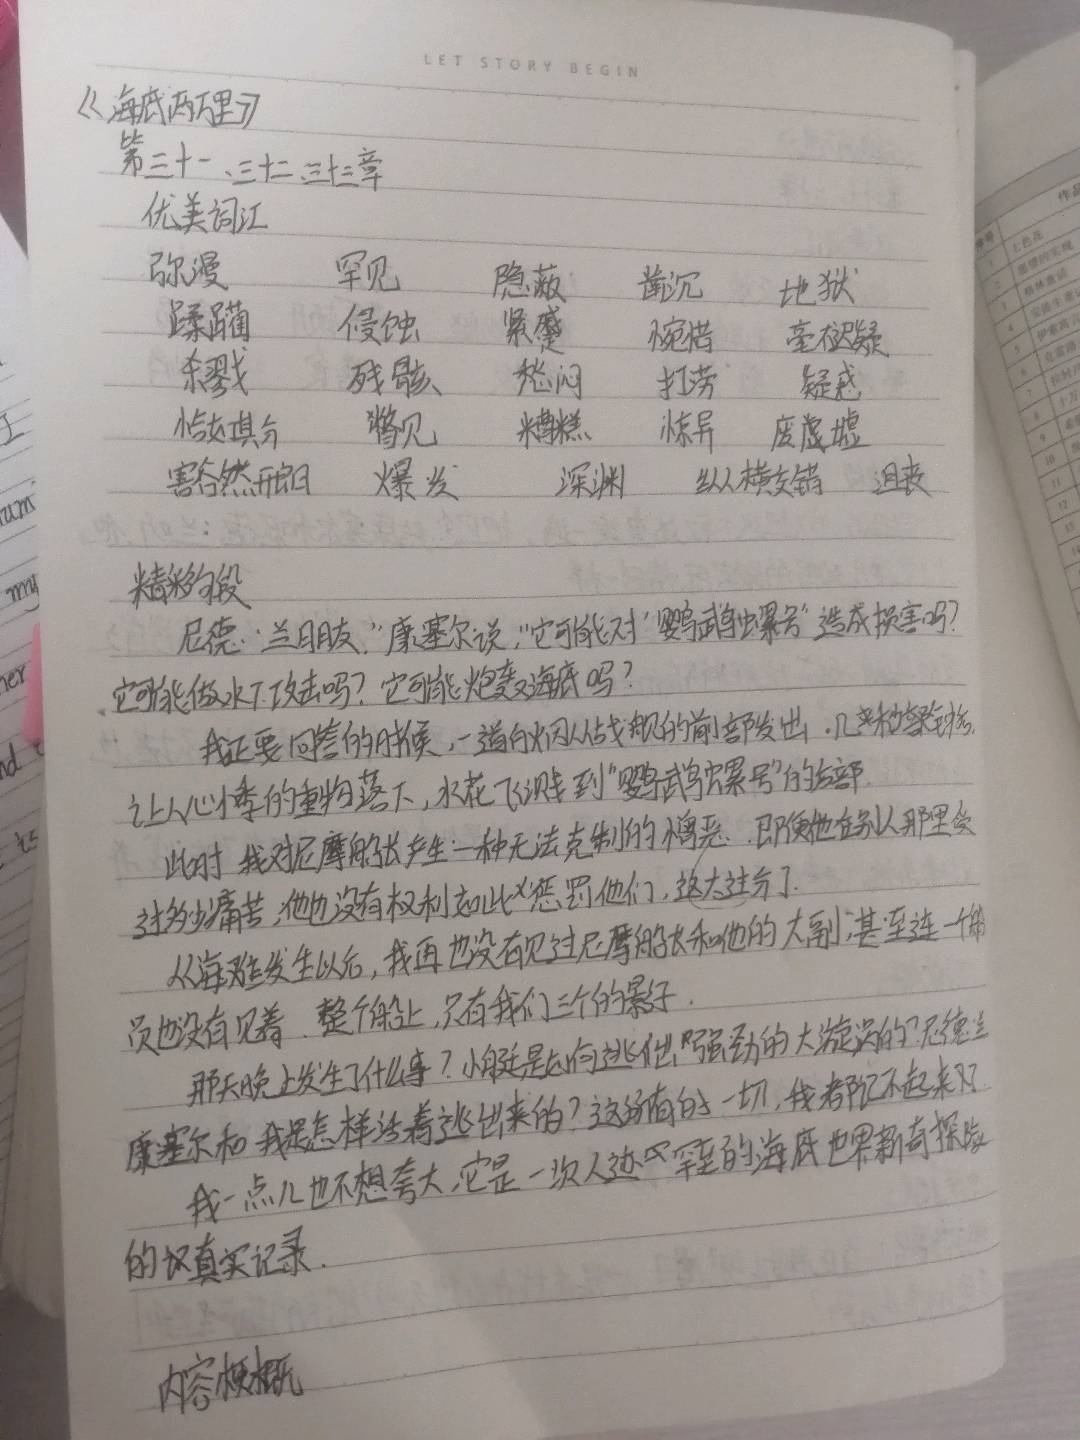 LET STORY BEGIN
《海底两万里》
第三十一、三十二、三十三章
优美词汇
弥漫 罕见 隐蔽 凿沉 地狱
蹂躏 侵蚀 紧蹙 惋惜 毫不迟疑
杀戮 残骸 愁闷 打捞 疑惑
恰如其分 瞥见 糟糕 惊异 废墟
豁然开朗 爆发 深渊 纵横交错 沮丧
精彩句段
尼德·兰朋友,"康塞尔说,"它可能对"鹦鹉螺号"造成损害吗?
它可能做水下攻击吗?它可能炮轰海底吗?
我正要回答的时候,一道白烟从战舰的前部发出.几秒
让人心悸的重物落下,水花飞溅到"鹦鹉螺号"的后部.
此时 我对尼摩船长产生一种无法克制的憎恶.即便他在别人那里受
过多少痛苦,他也没有权利如此惩罚他们,这太过分了.
从海难发生以后,我再也没有见过尼摩船长和他的大副;甚至连一个船
员也没有见着.整个船上,只有我们三个的影子.
那天晚上发生了什么事?小艇是如何逃他强劲的大漩涡的?尼德兰
康塞尔和我是怎样活着逃出来的?这所有的一切,我都记不起来了.
我一点儿也不想夸大,它是一次人迹罕至的海底世界新奇探险
的真实记录.
内容梗概